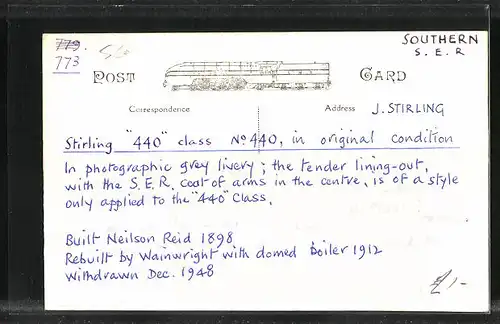 SOUTHERN
S. E. R
779.
773
560
POST CARD
Correspondence Address
J. STIRLING
Stirling "440" class No 440, in original condition
In photographic grey livery; the tender lining-out,
with the S.E.R. coat of arms in the centre, is of a style
only applied to the "440" Class.
Built Neilson Reid 1898
Rebuilt by Wainwright with domed boiler 1912
Withdrawn Dec. 1948
£1-